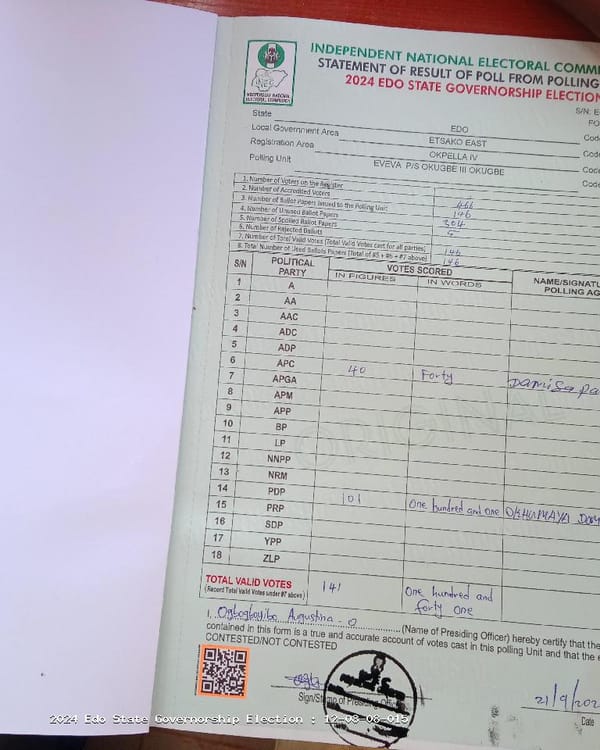 INDEPENDENT NATIONAL ELECTORAL COMM
STATEMENT OF RESULT OF POLL FROM POLLING
2024 EDO STATE GOVERNORSHIP ELECTION
INEC
INDEPENDENT NATIONAL
ELECTORAL COMMISSION
S/N: E
FO
State EDO Code
Local Government Area ETSAKO EAST Code
Registration Area OKPELLA IV Code
Polling Unit EVEVA P/S OKUGBE III OKUGBE Code
1. Number of Voters on the Register
2. Number of Accredited Voters
3. Number of Ballot Papers Issued to the Polling Unit 466
4. Number of Unused Ballot Papers 146
5. Number of Spoiled Ballot Papers 304
6. Number of Rejected Ballots 5
7. Number of Total Valid Votes (Total Valid Votes cast for all parties) 146
8. Total Number of Used Ballots Papers (Total of #5 + #6 + #7 above) 146
S/N POLITICAL PARTY VOTES SCORED NAME/SIGNATU
IN FIGURES IN WORDS POLLING AG
1 A
2 AA
3 AAC
4 ADC
5 ADP
6 APC 40 Forty Damisa Pa
7 APGA
8 APM
9 APP
10 BP
11 LP
12 NNPP
13 NRM
14 PDP 101 One hundred and one
15 PRP
16 SDP
17 YPP
18 ZLP
ORIGINAL
TOTAL VALID VOTES 141 One hundred and
(Record Total Valid Votes under #7 above) forty one
I, Augustina O (Name of Presiding Officer) hereby certify that the
contained in this form is a true and accurate account of votes cast in this polling Unit and that the e
CONTESTED/NOT CONTESTED
Sign/Stamp of Presiding Officer
21/9/202
Date
2024 Edo State Governorship Election : 12-08-08-015